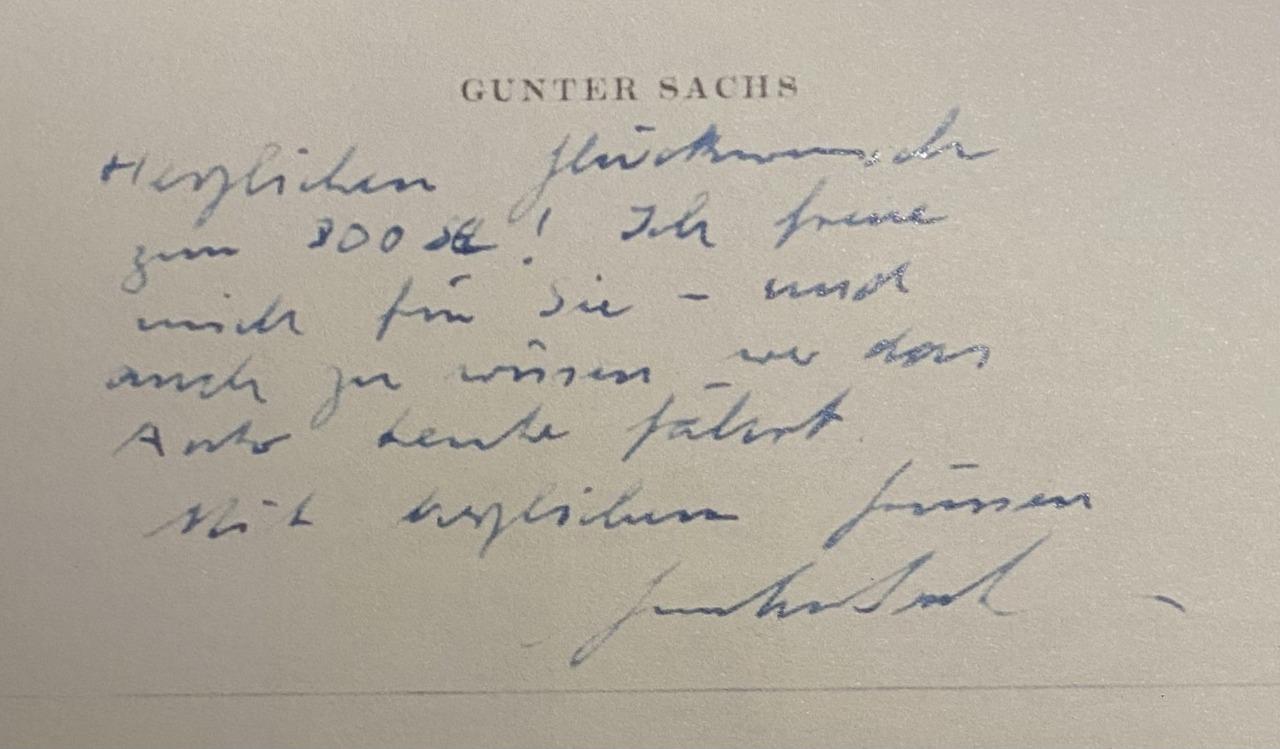 GUNTER SACHS
Herzlichen Glückwunsch
zum 300 SE! Ich freue
mich für Sie – und
auch zu wissen wer das
Auto heute fährt.
Mit herzlichen Grüssen
Gunter Sachs